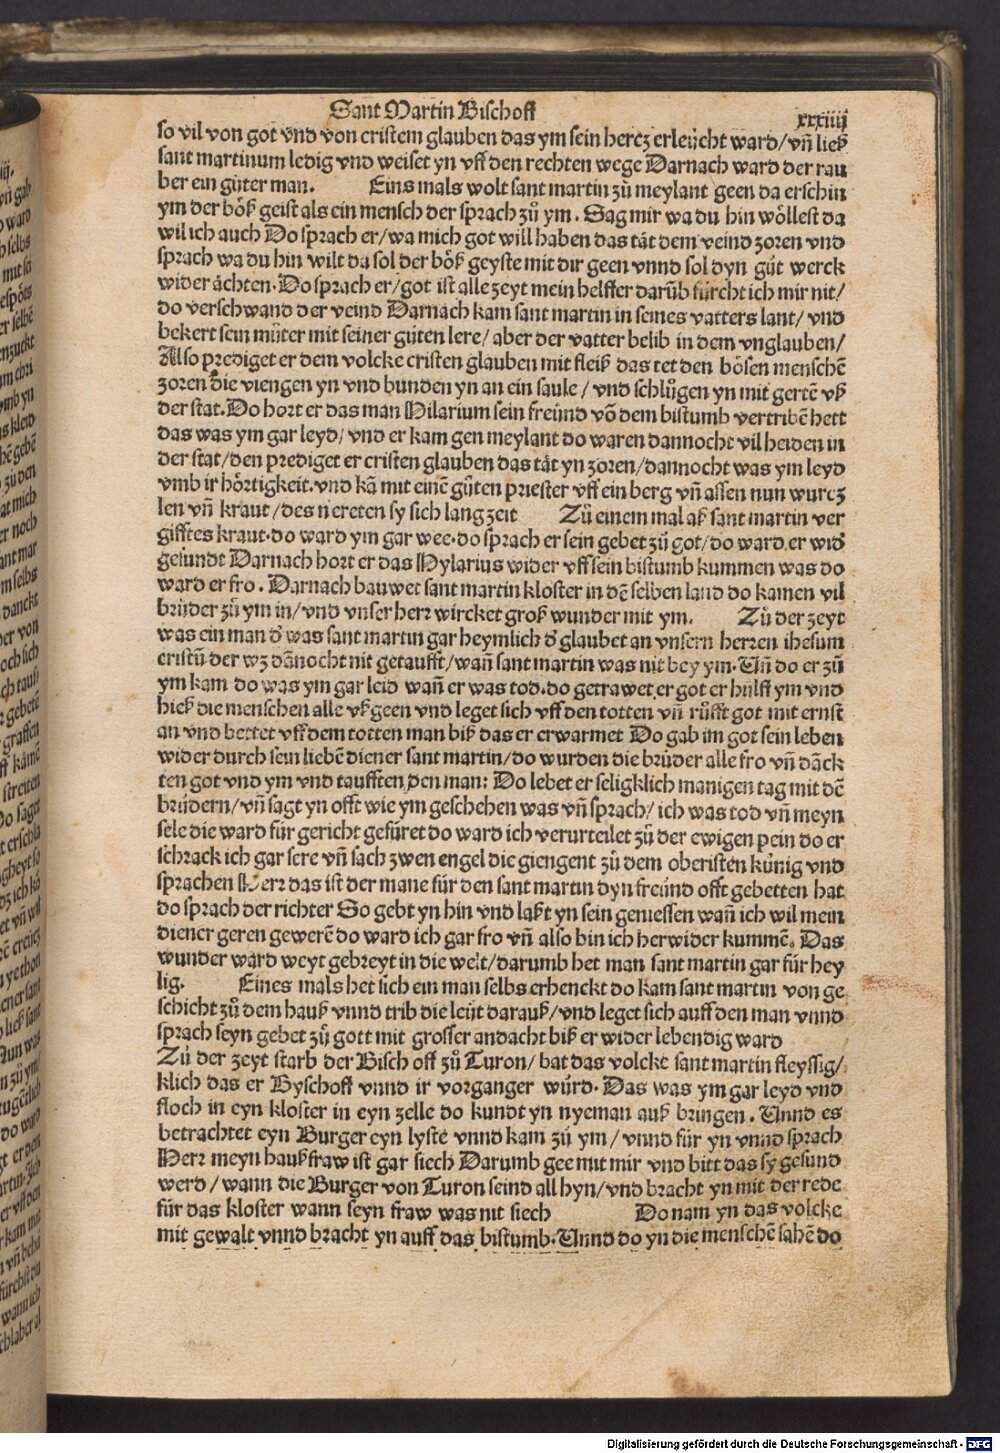 Sant Martin Bischoff
xxxiiij
so vil von got vnd von cristem glauben das ym sein hertz erleücht ward/vñ ließ
sant martinum ledig vnd weiset yn vff den rechten wege Darnach ward der rau
ber ein gůter man. Eins mals wolt sant martin zů meylant geen da erschin
ym der böß geist als ein mensch der sprach zů ym. Sag mir wa du hin wöllest da
wil ich auch Do sprach er/wa mich got will haben das tät dem veind zoren vnd
sprach wa du hin wilt da sol der böß geyste mit dir geen vnnd sol dyn gůt werck
wider ächten. Do sprach er/got ist alle zeyt mein helffer darũb fürcht ich mir nit/
do verschwand der veind Darnach kam sant martin in seines vatters lant/ vnd
bekert sein můter mit seiner gůten lere/ aber der vatter belib in dem vnglauben/
Also prediget er dem volcke cristen glauben mit fleiß das tet den bösen menschẽ
zoren die viengen yn vnd bunden yn an ein saule / vnd schlůgen yn mit gertẽ vß
der stat. Do hort er das man Hilarium sein freünd võ dem bistumb vertribẽ hett
das was ym gar leyd/ vnd er kam gen meylant do waren dannocht vil heiden in
der stat/den prediget er cristen glauben das tät yn zoren/dannocht was ym leyd
vmb ir hörtigkeit. vnd kã mit einẽ gůten priester vff ein berg vñ assen nun wurcz
len vñ kraut /des nereten sy sich lang zeit Zů einem mal aß sant martin ver
gifftes kraut. do ward ym gar wee. do sprach er sein gebet zů got/do ward er wid̉
gesundt Darnach hort er das Hylarius wider vff sein bistumb kummen was do
ward er fro. Darnach bauwet sant martin kloster in dẽ selben land do kamen vil
brůder zů ym in/vnd vnser herr wircket groß wunder mit ym. Zů der zeyt
was ein man d̉ was sant martin gar heymlich d̉ glaubet an vnsern herren ihesum
cristũ der wz dãnocht nit getaufft/wañ sant martin was nit bey ym. Uñ do er zů
ym kam do was ym gar leid wañ er was tod. do getrawet er got er hülff ym vnd
hieß die menschen alle vßgeen vnd leget sich vff den totten vñ růfft got mit ernst
an vnd bettet vff dem totten man biß das er erwarmet Do gab im got sein leben
wider durch sein liebẽ diener sant martin/do wurden die brüder alle fro vñ dãck
ten got vnd ym vnd taufften den man: Do lebet er seligklich manigen tag mit dẽ
brůdern/vñ sagt yn offt wie ym geschehen was vñ sprach/ ich was tod vñ meyn
sele die ward für gericht gefüret do ward ich verurteilet zů der ewigen pein do er
schrack ich gar sere vñ sach zwen engel die giengent zů dem oberisten künig vnd
sprachen Herr das ist der mane für den sant martin dyn freünd offt gebetten hat
do sprach der richter So gebt yn hin vnd laßt yn sein geniessen wañ ich wil mein
diener geren gewerẽ do ward ich gar fro vñ also bin ich herwider kummẽ. Das
wunder ward weyt gebreyt in die welt/darumb het man sant martin gar für hey
lig. Eines mals het sich ein man selbs erhenckt do kam sant martin von ge
schicht zů dem hauß vnnd trib die leüt darauß/vnd leget sich auff den man vnnd
sprach seyn gebet zů gott mit grosser andacht biß er wider lebendig ward
Zů der zeyt starb der Bischoff zů Turon/ bat das volcke sant martin fleyssig/
klich das er Byschoff vnnd ir vorganger würd. Das was ym gar leyd vnd
floch in eyn kloster in eyn zelle do kundt yn nyeman auß bringen. Unnd es
betrachtet eyn Burger eyn lyste vnnd kam zů ym/vnnd für yn vnnd sprach
Herr meyn haußfraw ist gar siech Darumb gee mit mir vnd bitt das sy gesund
werd / wann die Burger von Turon seind all hyn/vnd bracht yn mit der rede
für das kloster wann seyn fraw was nit siech Do nam yn das volcke
mit gewalt vnnd bracht yn auff das bistumb. Unnd do yn die menschẽ sahẽ do
Digitalisierung gefördert durch die Deutsche Forschungsgemeinschaft - DFG